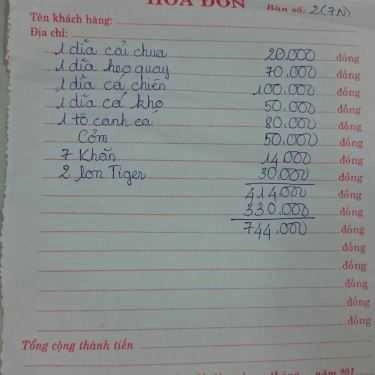 HÓA ĐƠN
Bàn số: 2(7N)
Tên khách hàng:
Địa chỉ:
1 dĩa cải chua 20.000 đồng
1 dĩa heo quay 70.000 đồng
1 dĩa cá chiên 100.000 đồng
1 dĩa cá kho 50.000 đồng
1 tô canh cá 80.000 đồng
Cơm 50.000 đồng
7 Khăn 14.000 đồng
2 lon Tiger 30.000 đồng
414.000 đồng
330.000 đồng
744.000 đồng
đồng
đồng
đồng
đồng
đồng
Tổng cộng thành tiền
năm 201